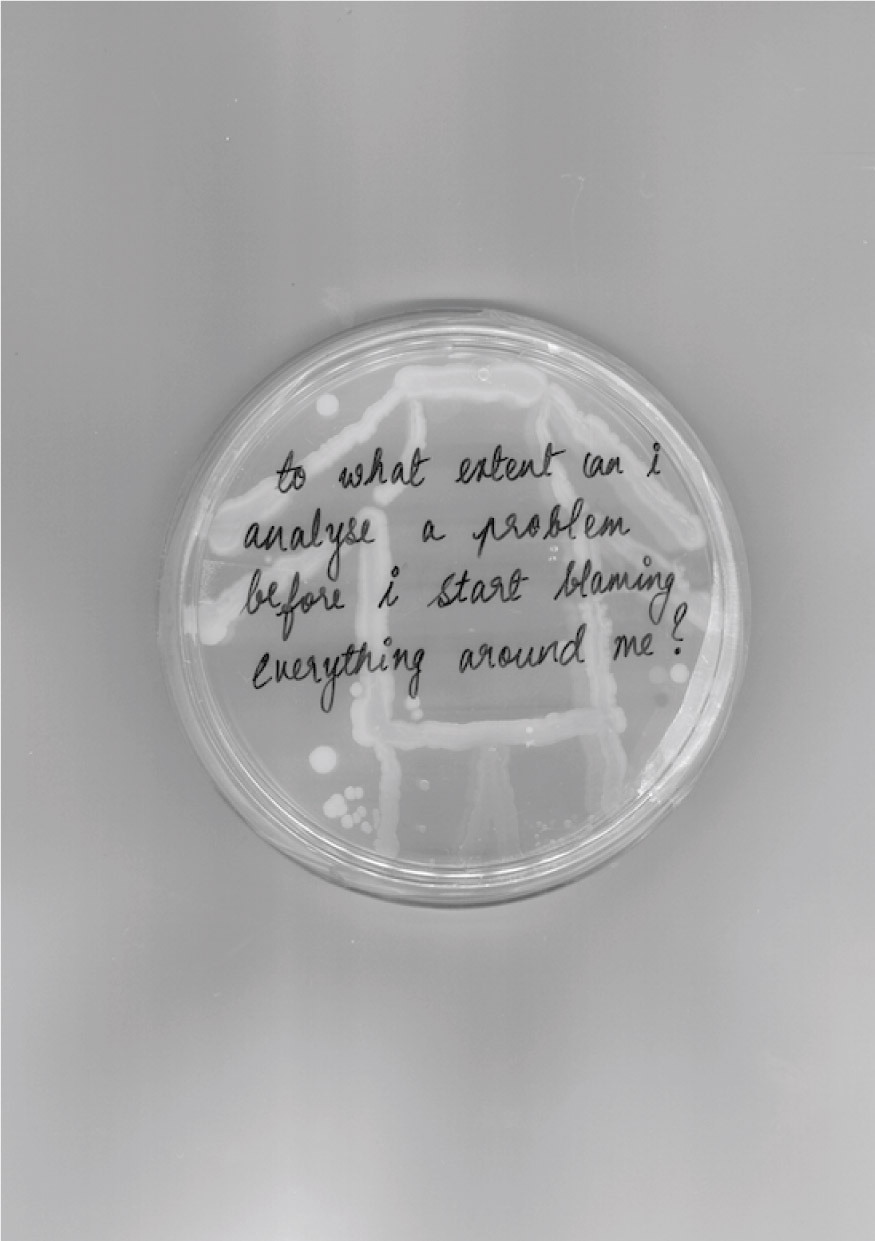 to what extent can i
analyse a problem
before i start blaming
everything around me?